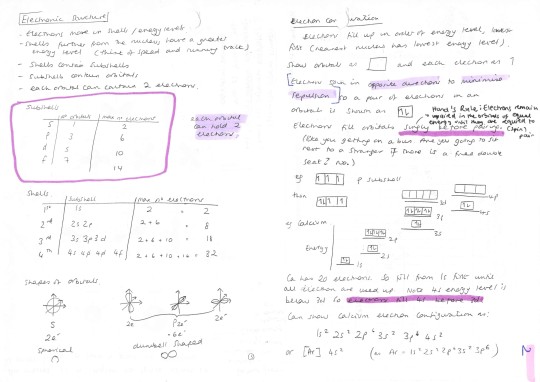 Electronic Structure
- Electrons move in shells / energy level.
- Shells further from the nucleus have a greater
energy level (think of speed and running track)
- Shells contain subshells
- Subshells contain orbitals
- each orbital can contain 2 electrons.
Subshells
no orbitals max no electrons
s 1 2
p 3 6
d 5 10
f 7 14
each orbital
can hold 2
electrons.
Shells
Subshell max no electrons
1st 1s 2 = 2
2nd 2s 2p 2 + 6 = 8
3rd 3s 3p 3d 2 + 6 + 10 = 18
4th 4s 4p 4d 4f 2 + 6 + 10 + 14 = 32
Shapes of orbitals
S
2e⁻
spherical
2e⁻ 2e⁻ 2e⁻
P
= 6e⁻
dumbell shaped
Electron Con
Electrons fill up in order of energy level, lowest
first (nearest nucleus has lowest energy level).
Show orbital as □ and each electron as ↑
Electrons spin in opposite direction to minimise
repulsion so a pair of electrons in an
orbital is shown as ↑↓
Hund's Rule: Electrons remain
unpaired in the orbitals of equal
energy until they are required to
(spin) pair
Electrons fill orbitals singly before pairing.
(like you getting on a bus. Are you going to sit
next to a stranger if there is a free double
seat? no.)
eg p subshell
then
eg Calcium
Energy
1s
2s
2p
3s
3p
3d
4s
Ca has 20 electrons. So fill from 1s first until
all electrons are used up. Note 4s energy level is
below 3d so electrons fill 4s before 3d
Can show calcium electron configuration as:
1s² 2s² 2p⁶ 3s² 3p⁶ 4s²
or [Ar] 4s² (as Ar = 1s² 2s² 2p⁶ 3s² 3p⁶)